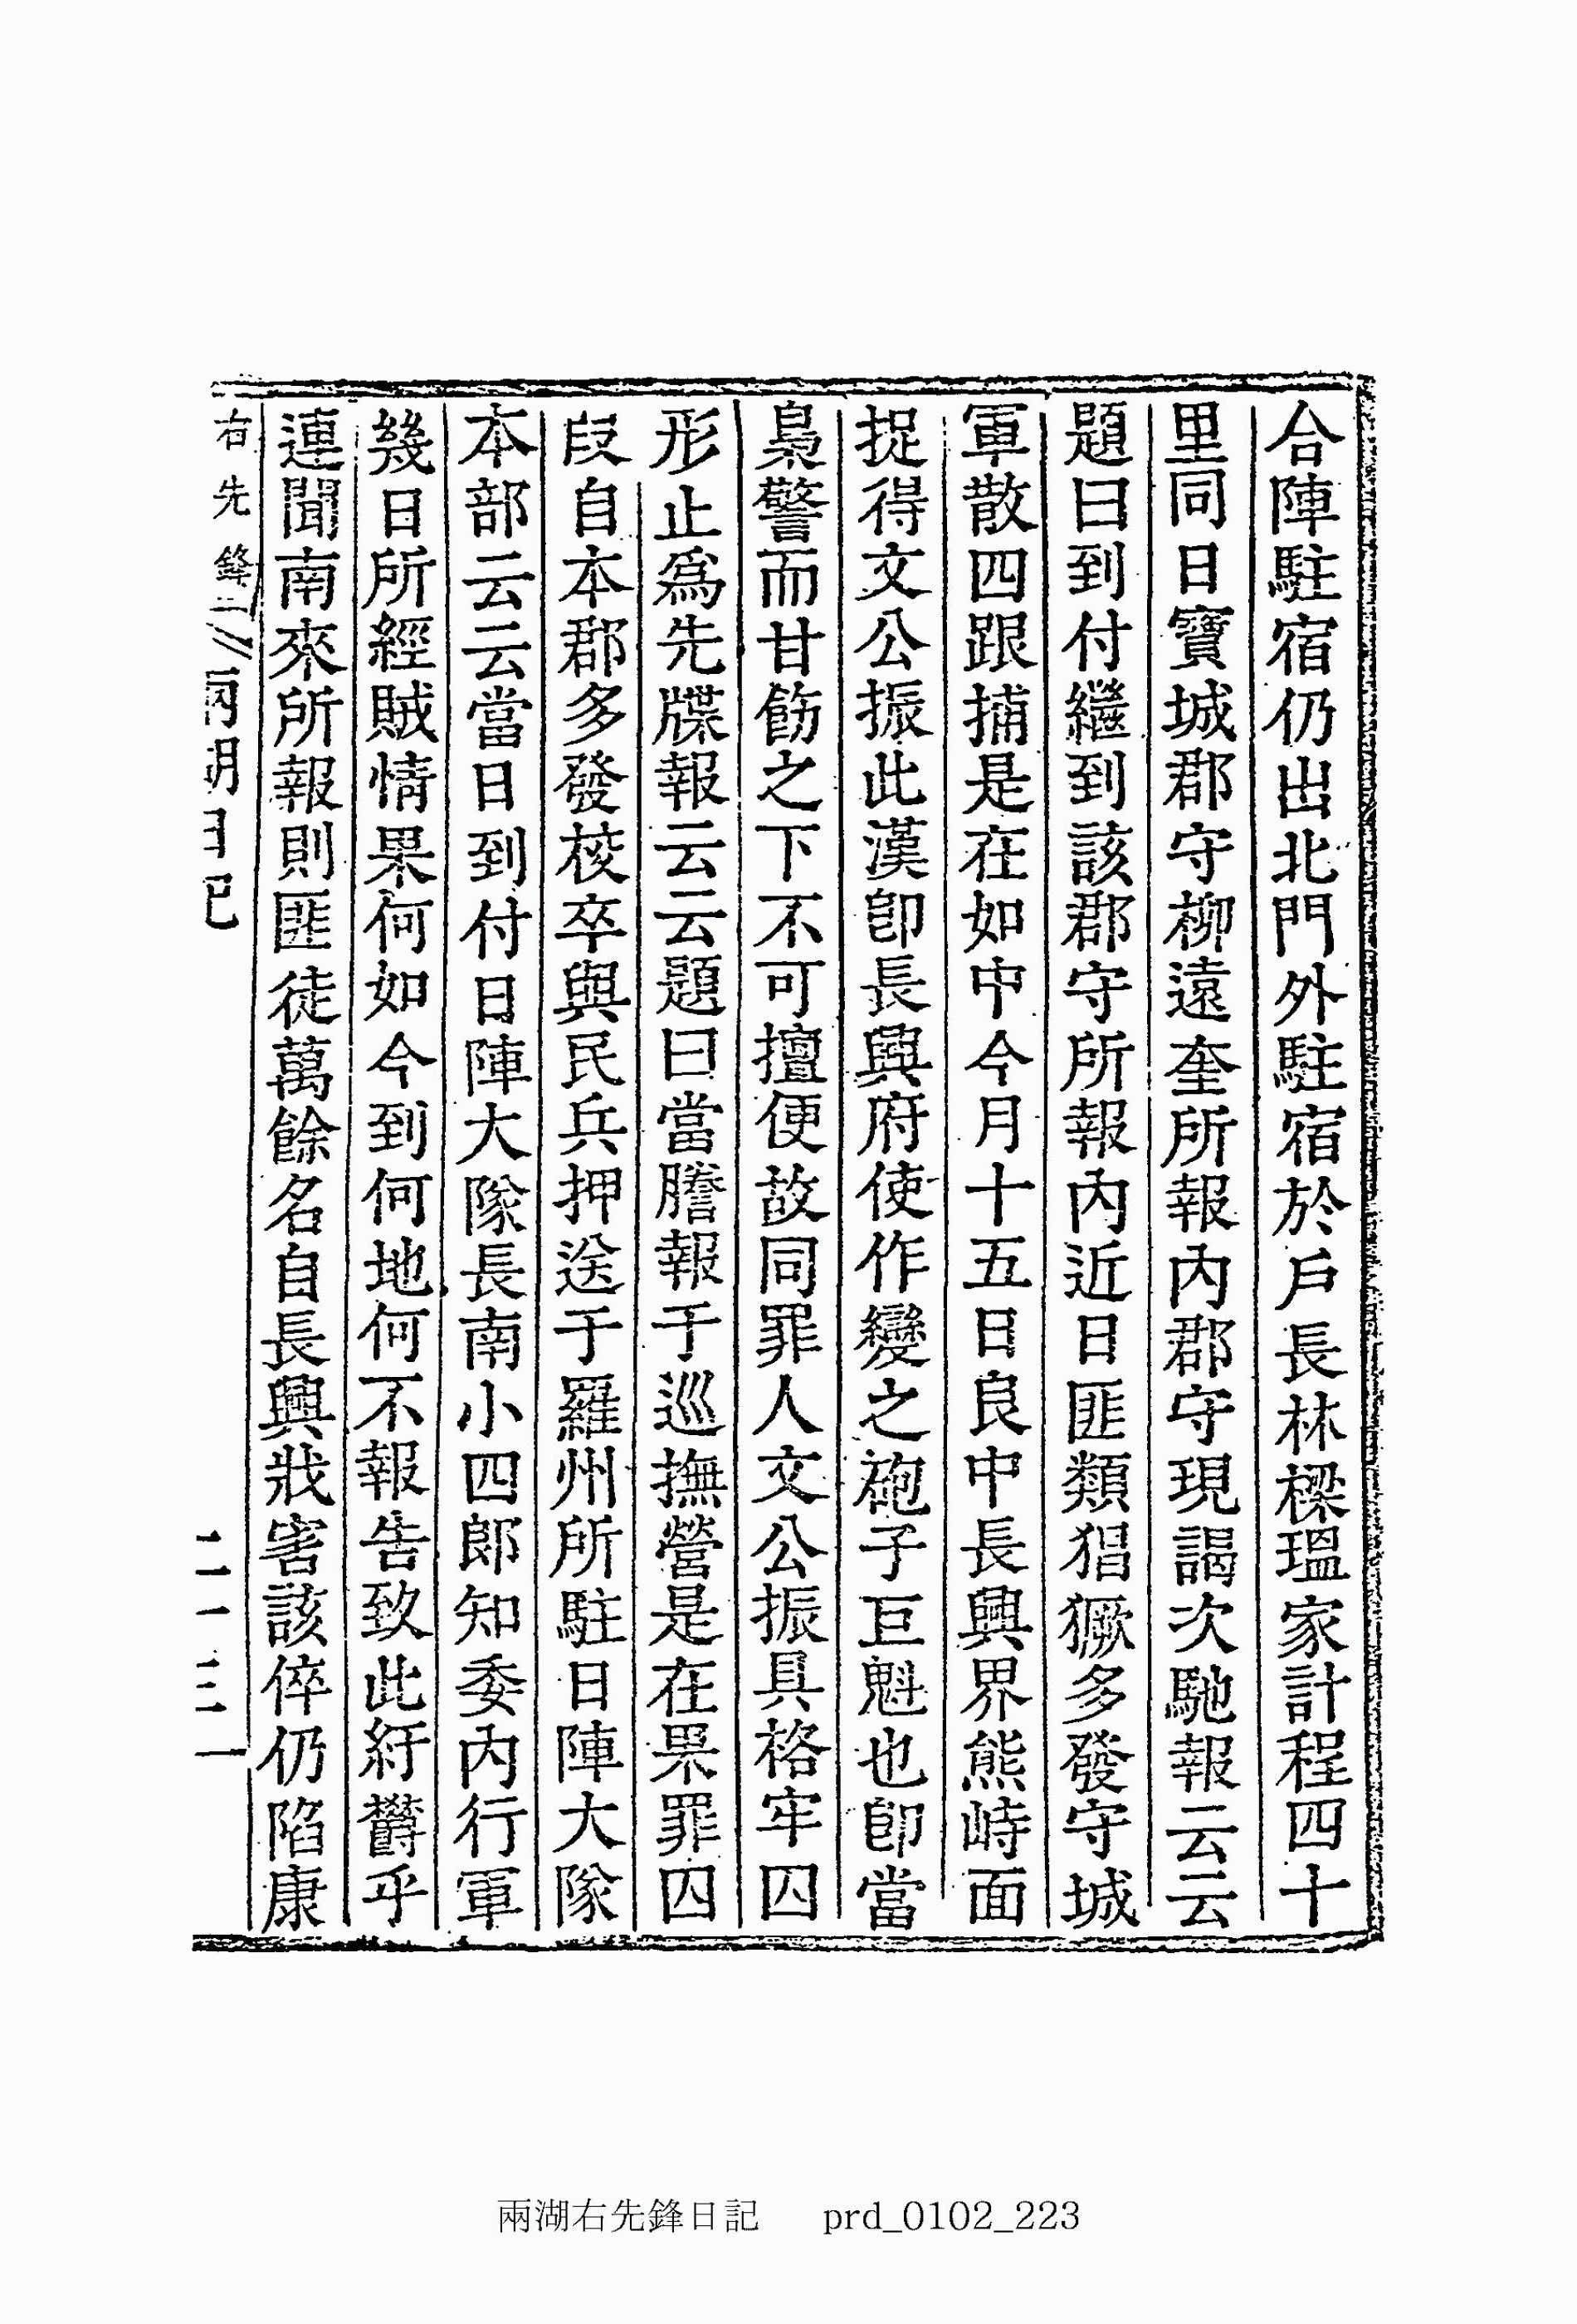 合陣駐宿仍出北門外駐宿於戶長林樑瑥家計程四十
里同日寶城郡守柳遠奎所報內郡守現謁次馳報云云
題曰到付繼到該郡守所報內近日匪類猖獗多發守城
軍散四跟捕是在如中今月十五日良中長興界熊峙面
捉得文公振此漢卽長興府使作變之砲子巨魁也卽當
梟警而甘飭之下不可擅便故同罪人文公振具格牢囚
形止爲先牒報云云題曰當謄報于巡撫營是在果罪囚
段自本郡多發校卒與民兵押送于羅州所駐日陣大隊
本部云云當日到付日陣大隊長南小四郎知委內行軍
幾日所經賊情果何如今到何地何不報告致此紆欝乎
連聞南來所報則匪徒萬餘名自長興戕害該倅仍陷康
右先鋒二 兩湖日記 二一三一
兩湖右先鋒日記 prd_0102_223